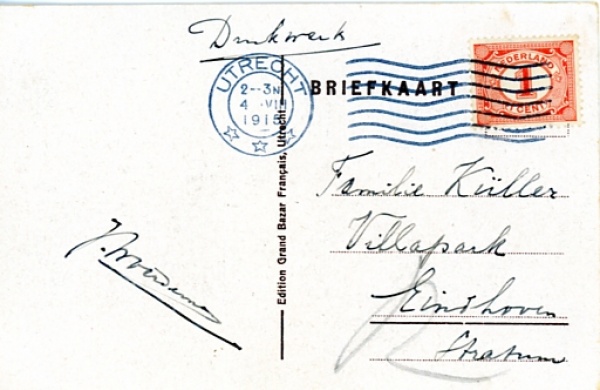 Drukwerk
UTRECHT
2--3N
4 VIII
1915
BRIEFKAART
NEDERLAND
1
CENT
Edition Grand Bazar Français, Utrecht
Familie Küller
Villapark
Eindhoven
Stratum